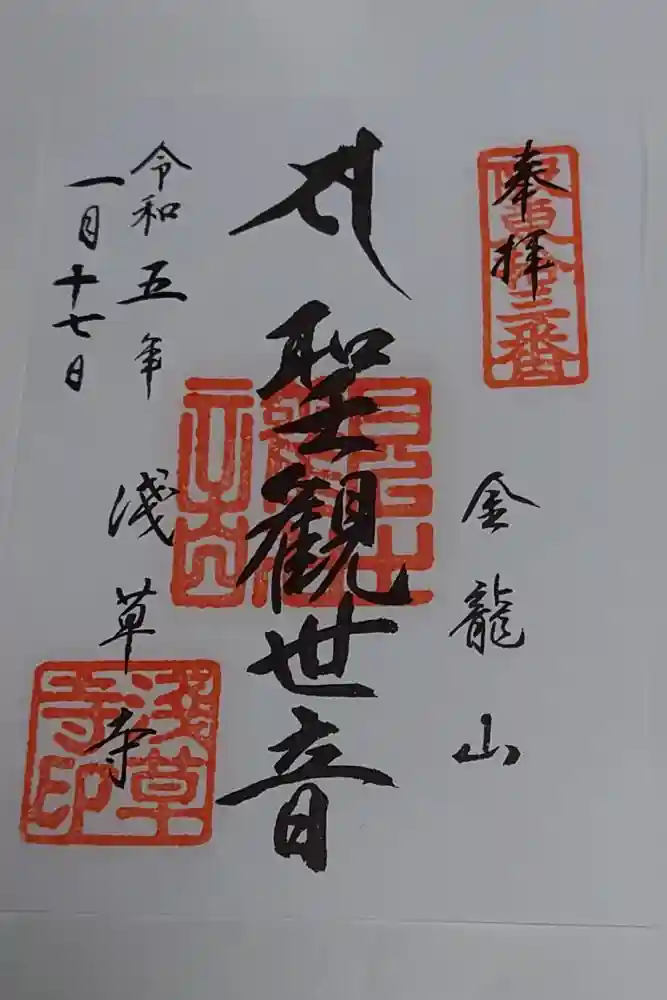 奉拝
坂東拾三番
金龍山
聖観世音
浅草寺
令和五年
一月十七日
浅草寺印